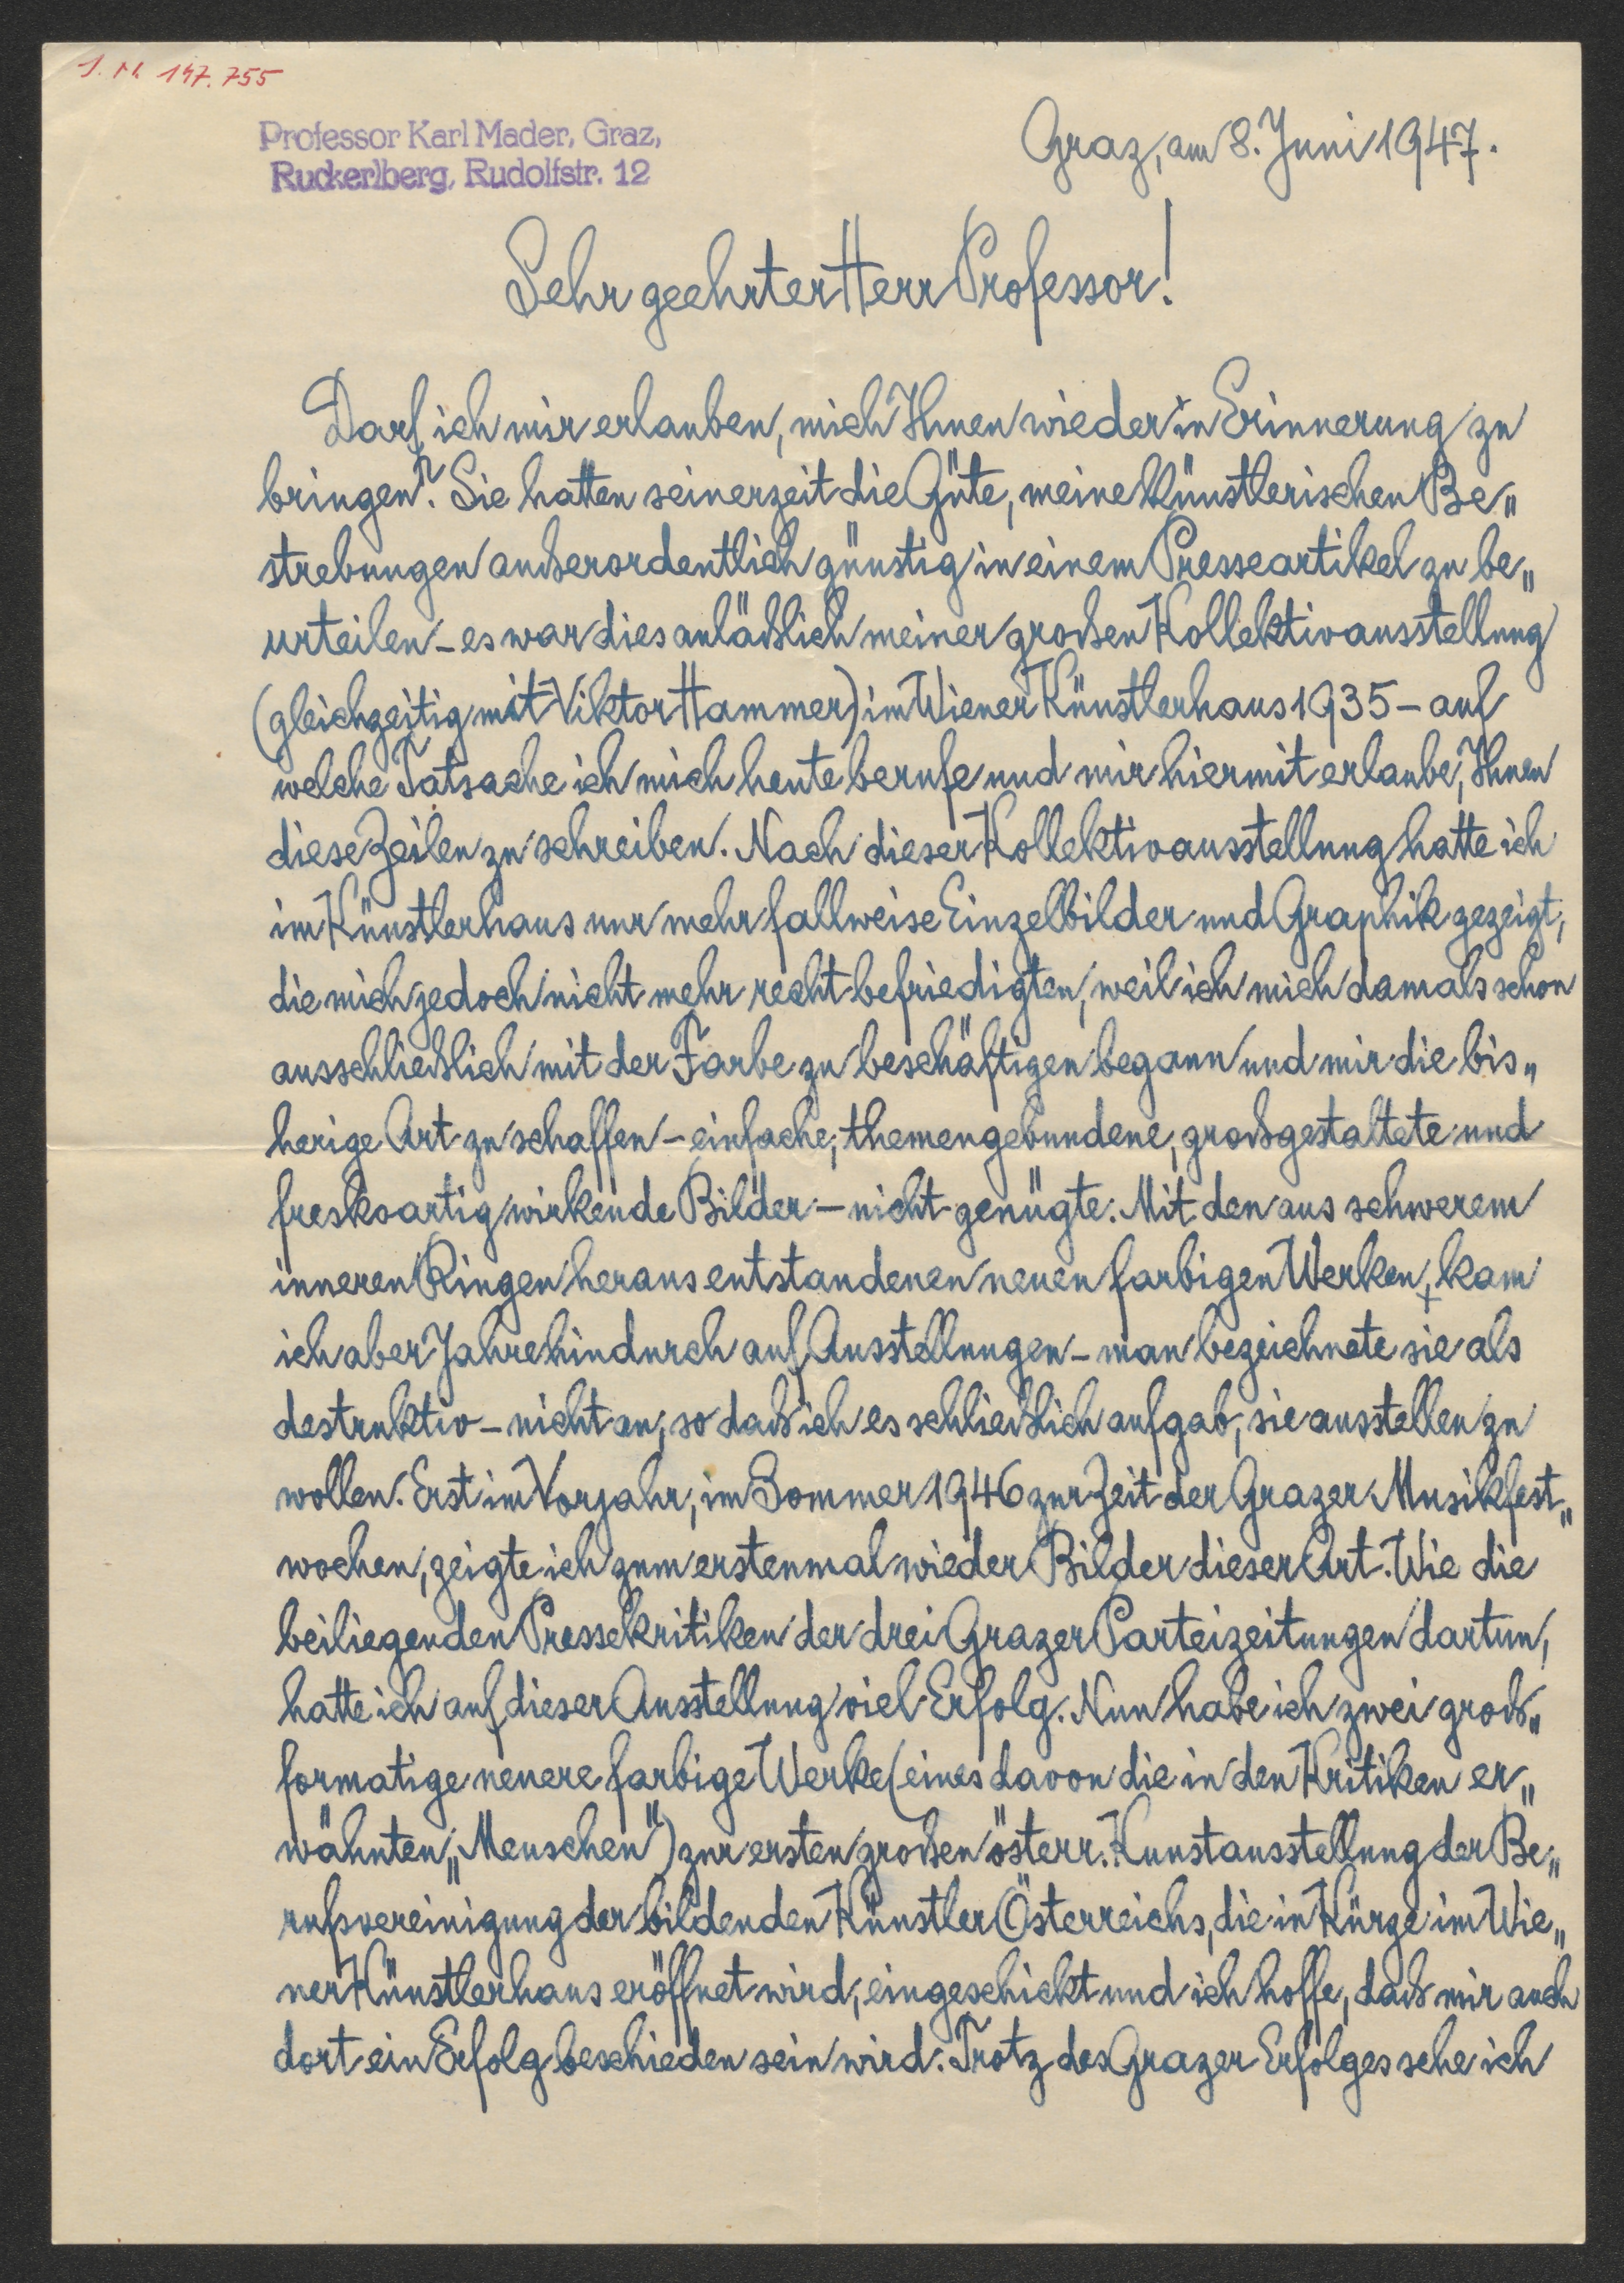 J. N. 147.755
Professor Karl Mader, Graz,
Ruckerlberg, Rudolfstr. 12
Graz, am 8. Juni 1947.
Sehr geehrter Herr Professor!
Darf ich mir erlauben, mich Ihnen wieder in Erinnerung zu
bringen? Sie hatten seinerzeit die Güte, meine künstlerischen Be„
strebungen außerordentlich günstig in einem Presseartikel zu be„
urteilen – es war dies anläßlich meiner großen Kollektivausstellung
(gleichzeitig mit Viktor Hammer) im Wiener Künstlerhaus 1935 – auf
welche Tatsache ich mich heute berufe und mir hiermit erlaube, Ihnen
diese Zeilen zu schreiben. Nach dieser Kollektivausstellung hatte ich
im Künstlerhaus nur mehr fallweise Einzelbilder und Graphik gezeigt,
die mich jedoch nicht mehr recht befriedigten, weil ich mich damals schon
ausschließlich mit der Farbe zu beschäftigen begann und mir die bis„
herige Art zu schaffen – einfache, themengebundene, großgestaltete und
freskoartig wirkende Bilder – nicht genügte. Mit den aus schwerem
inneren Ringen heraus entstandenen neuen farbigen Werken, kam
ich aber Jahre hindurch auf Ausstellungen – man bezeichnete sie als
destruktiv – nicht an, so daß ich es schließlich aufgab, sie ausstellen zu
wollen. Erst im Vorjahr, im Sommer 1946 zur Zeit der Grazer Musikfest„
wochen, zeigte ich zum erstenmal wieder Bilder dieser Art. Wie die
beiliegenden Pressekritiken der drei Grazer Parteizeitungen dartun,
hatte ich auf dieser Ausstellung viel Erfolg. Nun habe ich zwei groß„
formatige neuere farbige Werke (eines davon die in den Kritiken er„
wähnten „Menschen") zur ersten großen österr. Kunstausstellung der Be„
rufsvereinigung der bildenden Künstler Österreichs, die in Kürze im Wie„
ner Künstlerhaus eröffnet wird, eingeschickt und ich hoffe, daß mir auch
dort ein Erfolg beschieden sein wird. Trotz des Grazer Erfolges sehe ich